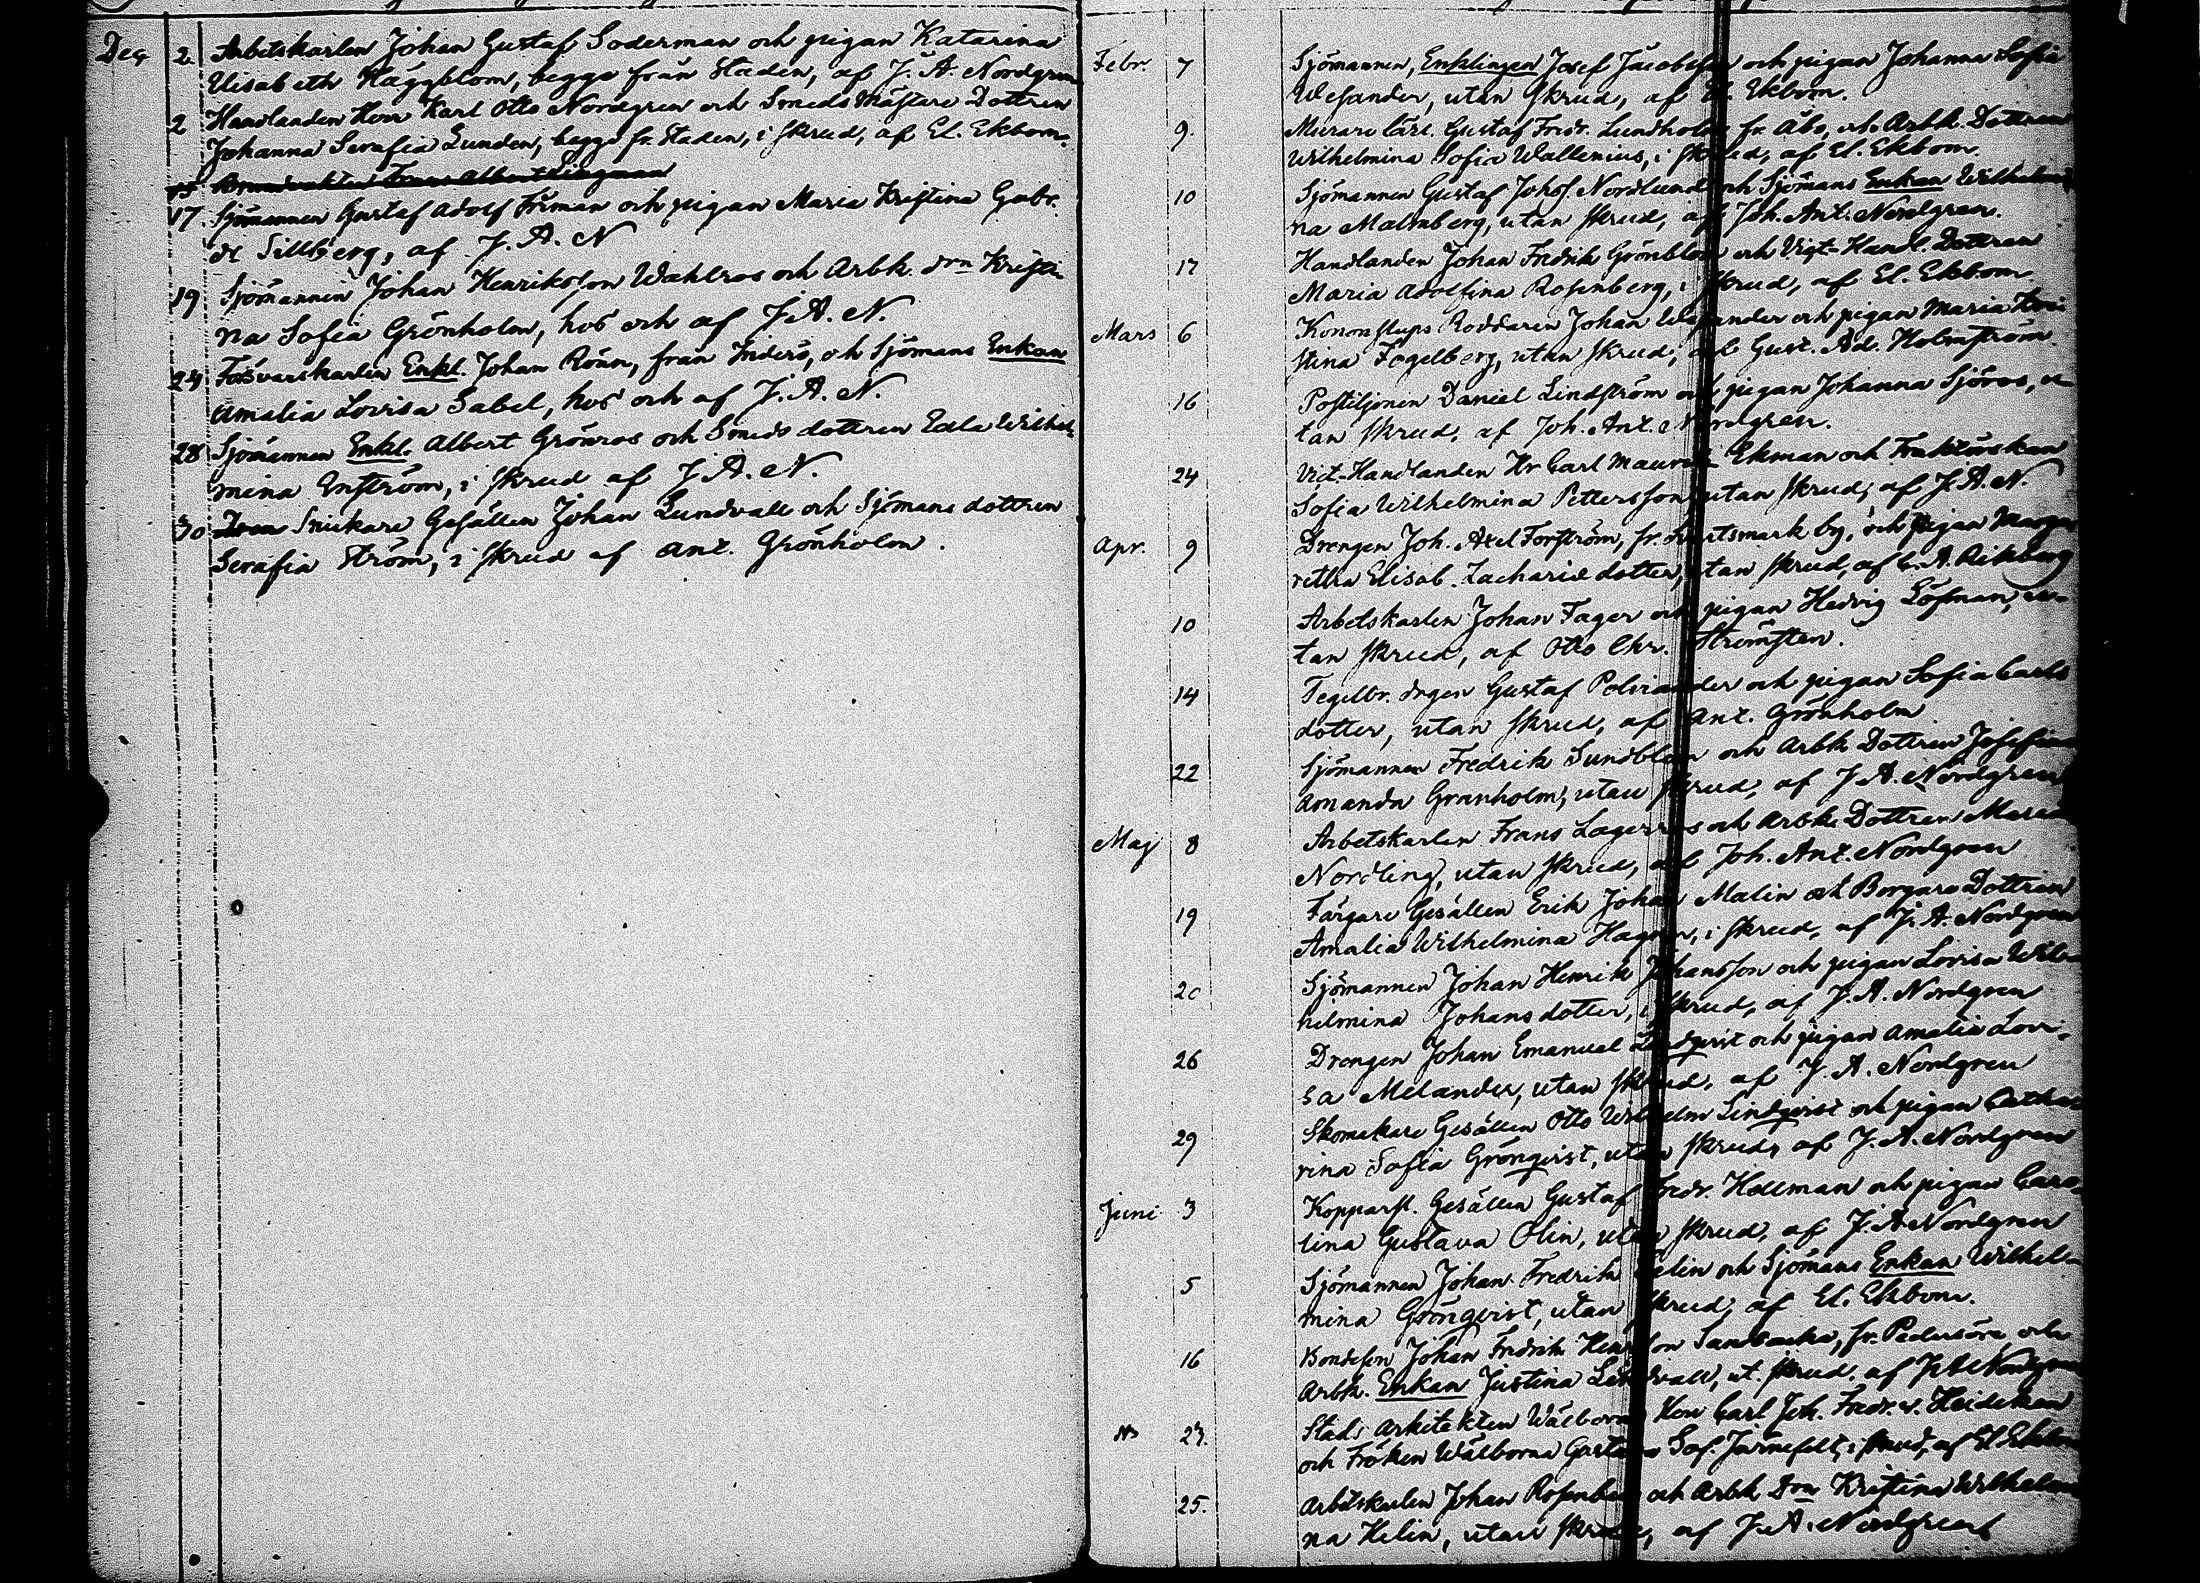 Dec 2. Arbetskarlen Johan Gustaf Söderman och pigan Katarina
Elisabeth Häggblom, begge från Staden, af J. A. Nordgren
2 Handlanden Herr Karl Otto Nordgren och Smeds Mästare Dottren
Johanna Serafia Lunden, begge fr. Staden, i skrud, af El. Ekbom.
15 Brandvakten Frans Albert
17. Sjömannen Gustaf Adolf Friman och pigan Maria Kristina Gabr.
Sillberg, af J. A. N
19 Sjömannen Johan Henriksson Wahlroos och Arbk. drn Kristi-
na Sofia Grönholm, hos och af J. A. N.
24 Försvarskarlen Enkl. Johan Rönn, från Inderö, och Sjömans Enkan
Amalia Lovisa Sabel, hos och af J. A. N.
28 Sjömannen Enkl. Albert Grönros och Smeds dottren Edla Wilhel-
mina Enström, i skrud af J. A. N.
30 Snickare Gesällen Johan Lundvall och Sjömans dottren
Serafia Ström, i skrud af Ant. Grönholm.
Febr. 7 Sjömannen, Enklingen Josef Jacobsson och pigan Johanna Sofia
Wesander, utan skrud, af El. Ekbom.
9. Murare lärl. Gustaf Fredr. Lundholm fr. Åbo, och Arbk. Dottren
Wilhelmina Sofia Wallenius, i skrud, af El. Ekbom.
10 Sjömannen Gustaf Johsf. Nordlund och Sjömans Enkan Wilhelmi
na Malmberg, utan skrud, af Joh. Ant. Nordgren.
17 Handlanden Johan Fredrik Grönblom och Vict-Handl. Dottren
Maria Adolfina Rosenberg, i skrud, af El. Ekbom
Mars 6 Konon slups Roddaren Johan Wesander och pigan Maria Kri
stina Fogelberg, utan skrud, af Gust. Ad. Holmström
16 Postiljonen Daniel Lindström och pigan Johanna Sjöros, u-
tan skrud, af Joh. Ant. Nordgren.
24 Vict-Handlanden Hr Carl Mauritz Ekman och Fraktörskan
Sofia Wilhelmina Pettersson, utan skrud, af J. A. N.
Apr. 9 Drengen Joh. Axel Forsström, fr. by, och pigan Marga
retha Elisab. Zacharie dotter, utan skrud, af
10 Arbetskarlen Johan Fager och pigan Hedvig Löfman, u-
tan skrud, af Otto Chr. Strömsten.
14 Tegelbr. drgen Gustaf Polviander och pigan Sofia Carls
dotter, utan skrud, af Ant. Grönholm
22 Sjömannen Fredrik Sundblom och Arbk Dottren Josefina
Amanda Granholm, utan skrud, af J. A. Nordgren
Maj 8 Arbetskarlen Frans Lagerros och Arbk Dottren Maria
Nordling, utan skrud, af Joh. Ant. Nordgren
19 Färgare Gesällen Erik Johan Malin och Borgare Dottren
Amalia Wilhelmina Hagman, i skrud, af J. A. Nordgren
20 Sjömannen Johan Henrik Johansson och pigan Lovisa Wil-
helmina Johansdotter, i skrud, af J. A. Nordgren
26 Drengen Johan Emanuel Lindqvist och pigan Amalia Lovi-
sa Melander, utan skrud, af J. A. Nordgren
29 Skomakare Gesällen Otto Wilhelm Lindqvist och pigan Catha-
rina Sofia Grönqvist, utan skrud, af J. A. Nordgren
Juni 3 Kopparsl. Gesällen Gustaf Fredr. Hellman och pigan Caro-
lina Gustava Olin, utan skrud, af J. A. Nordgren
5 Sjömannen Johan Fredrik Felin och Sjömans Enkan Wilhel-
mina Grönqvist, utan skrud, af El. Ekbom.
16 Bondeson Johan Fredrik Henriksson Sandbacka, fr. Pedersöre och
Arbk. Enkan Justina Lindvall, ut. skrud, af J. A. Nordgren
23. Stads Arkitekten Wälborne Herr Carl Joh. Fredr. v. Heideken
och Fröken Wälborna Gustava Sof. Järnefelt, i skrud, af El Ekbom
25. Arbetskarlen Johan Rosenberg och Arbk Drn Kristina Wilhelmi
na Helin, utan skrud, af J. A. Nordgren